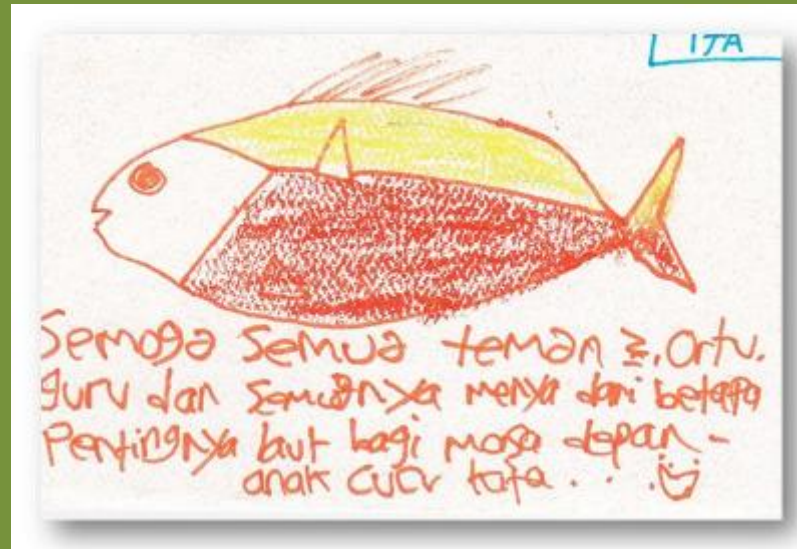 ITA
Semoga semua teman2, Ortu.
guru dan semuanya menyadari betapa
Pentingnya laut bagi masa depan -
anak cucu kita . . .